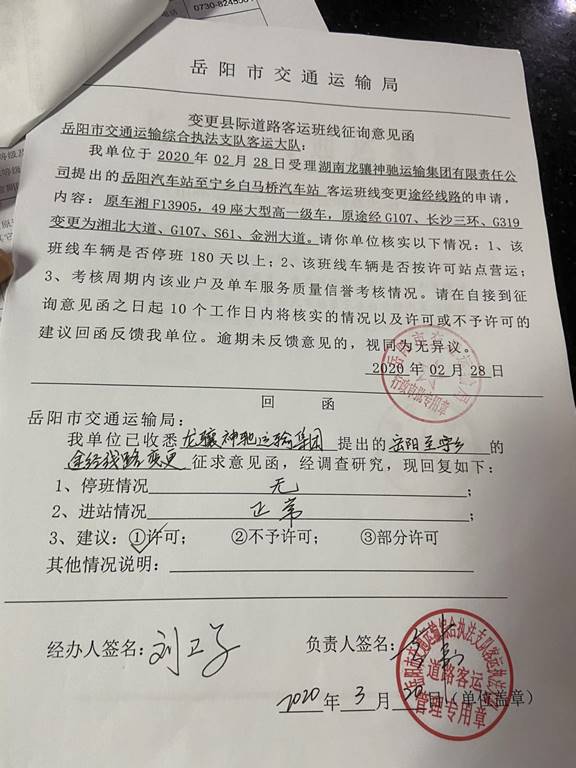 0730-8245501
岳阳市交通运输局
变更县际道路客运班线征询意见函
岳阳市交通运输综合执法支队客运大队：
我单位于 2020 年 02 月 28 日受理湖南龙骧神驰运输集团有限责任公
司提出的岳阳汽车站至宁乡白马桥汽车站 客运班线变更途经线路的申请，
内容：原车湘F13905，49座大型高一级车，原途经G107、长沙三环、G319
变更为湘北大道、G107、S61、金洲大道。请你单位核实以下情况：1、该
班线车辆是否停班 180 天以上；2、该班线车辆是否按许可站点营运；
3、考核周期内该业户及单车服务质量信誉考核情况。请在自接到征
询意见函之日起 10 个工作日内将核实的情况以及许可或不予许可的
建议回函反馈我单位。逾期未反馈意见的，视同为无异议。
2020 年 02 月 28 日
行政审批专用章
回 函
岳阳市交通运输局：
我单位已收悉龙骧神驰运输集团 提出的岳阳至宁乡 的
途经线路变更 征求意见函，经调查研究，现回复如下：
1、停班情况 无 ；
2、进站情况 正常 ；
3、建议：①许可； ②不予许可； ③部分许可
其他情况说明：
经办人签名： 负责人签名：
2020 年 3 月 日（单位盖章）
岳阳市交通运输综合执法支队客运大队
道路客运
管理专用章